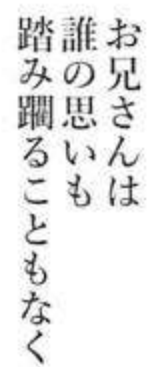 お兄さんは
誰の思いも
踏み躙ることもなく